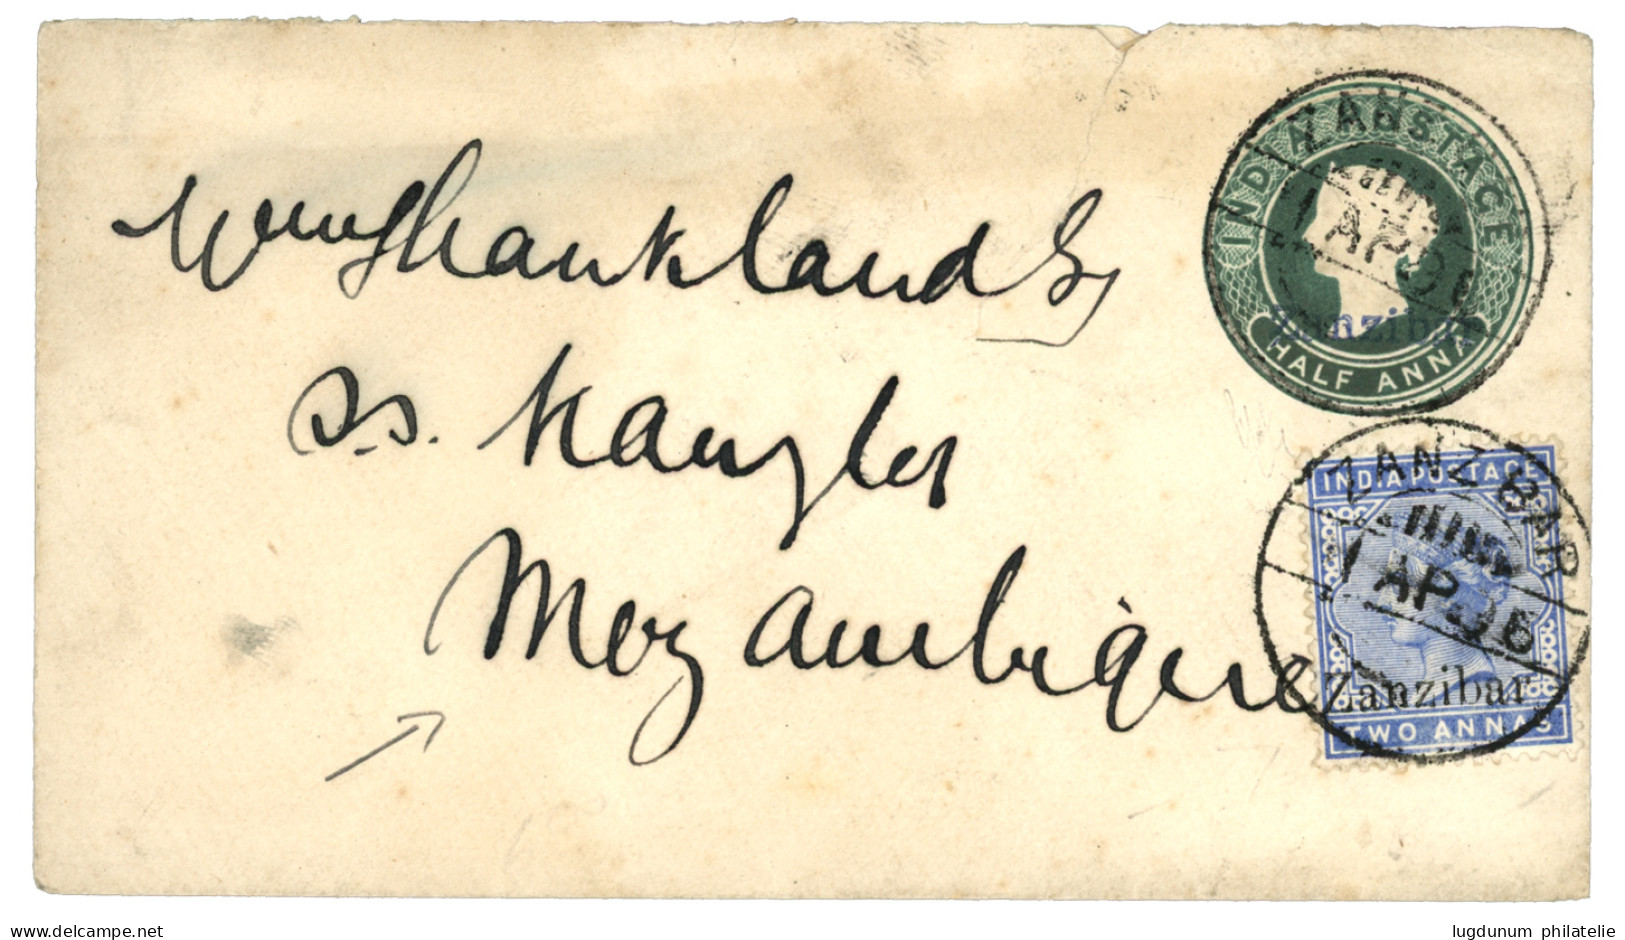 INDIA POSTAGE
ZAN
AP 96
Zanzibar
HALF ANNA
S.S. Kanzler
Mozambique
ZANZIBAR
INDIA POSTAGE
AP 96
Zanzibar
TWO ANNAS
www.delcampe.net
lugdunum philatelie